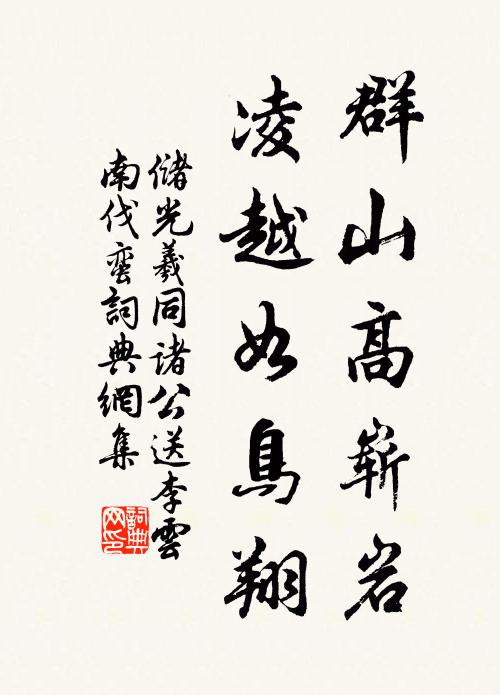 群山高嶄岩
凌越如鳥翔
儲光羲同諸公送李雲
南伐蛮詞典網集
詞典网印